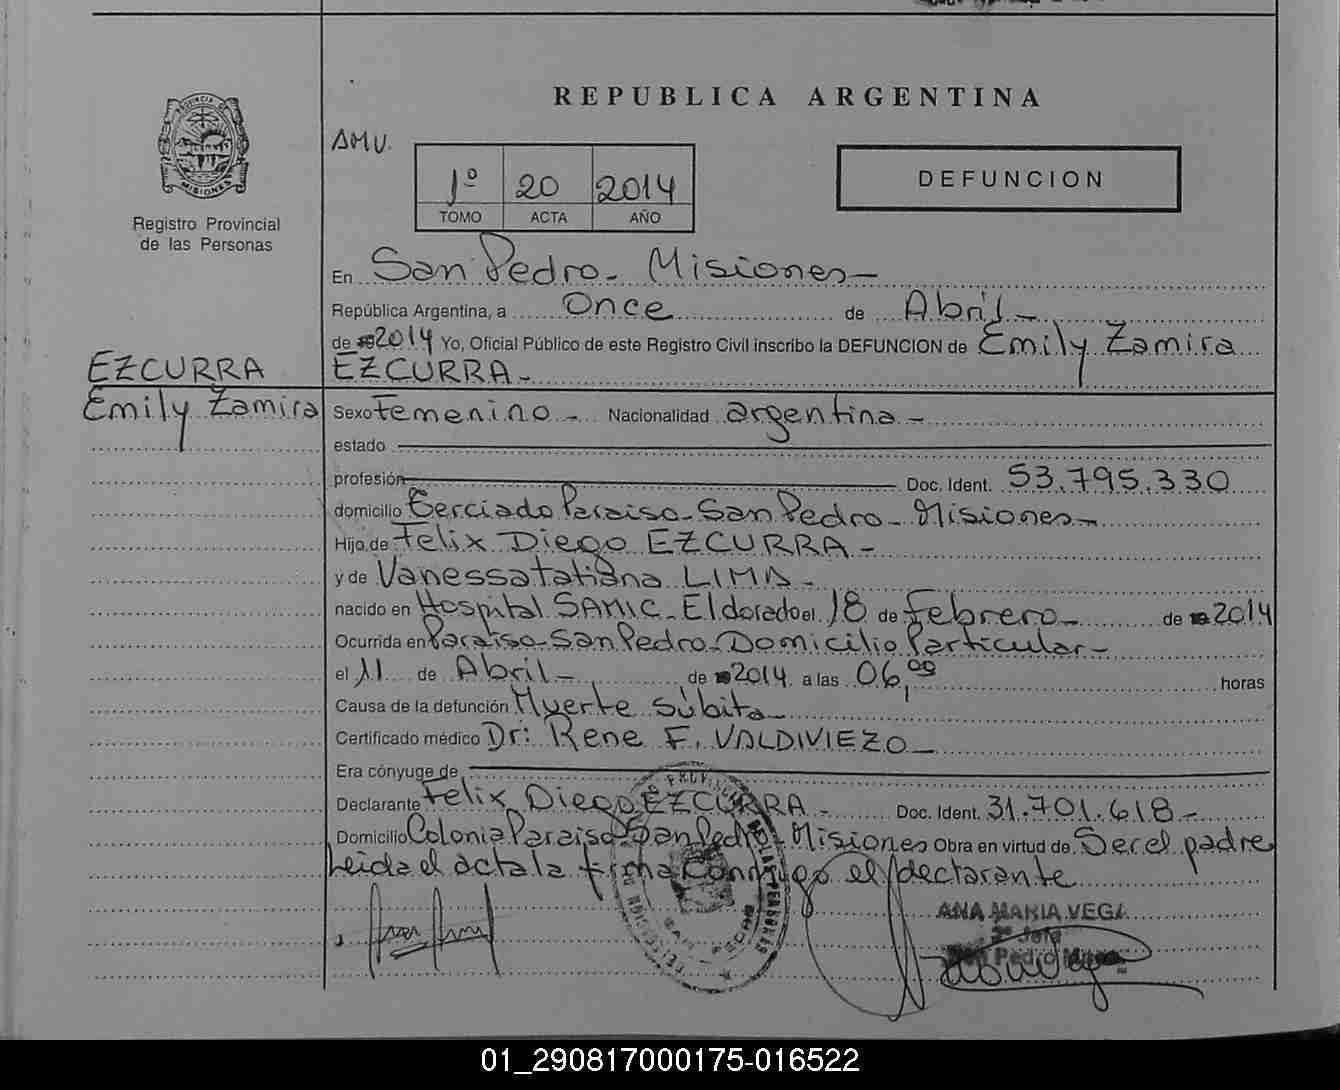 REPUBLICA ARGENTINA
PROVINCIA DE MISIONES
Registro Provincial
de las Personas
AMV.
1º 20 2014
TOMO ACTA AÑO
DEFUNCION
En San Pedro - Misiones -
República Argentina, a Once de Abril -
de 2014 Yo, Oficial Público de este Registro Civil inscribo la DEFUNCION de Emily Zamira
EZCURRA -
EZCURRA
Emily Zamira
Sexo Femenino - Nacionalidad argentina -
estado
profesión Doc. Ident. 53.795.330
domicilio Terciado Paraiso - San Pedro - Misiones -
Hijo de Felix Diego EZCURRA -
y de Vanessa Tatiana LIMA -
nacido en Hospital SAMIC - Eldorado el 18 de Febrero - de 2014
Ocurrida en Paraiso - San Pedro - Domicilio Particular -
el 11 de Abril - de 2014 a las 06,00 horas
Causa de la defunción Muerte súbita -
Certificado médico Dr: Rene F. VALDIVIEZO -
Era cónyuge de
Declarante Felix Diego EZCURRA - Doc. Ident. 31.701.618 -
Domicilio Colonia Paraiso - San Pedro - Misiones Obra en virtud de Ser el padre
Leida el acta la firma conmigo el declarante
ANA MARIA VEGA
San Pedro
01_290817000175-016522